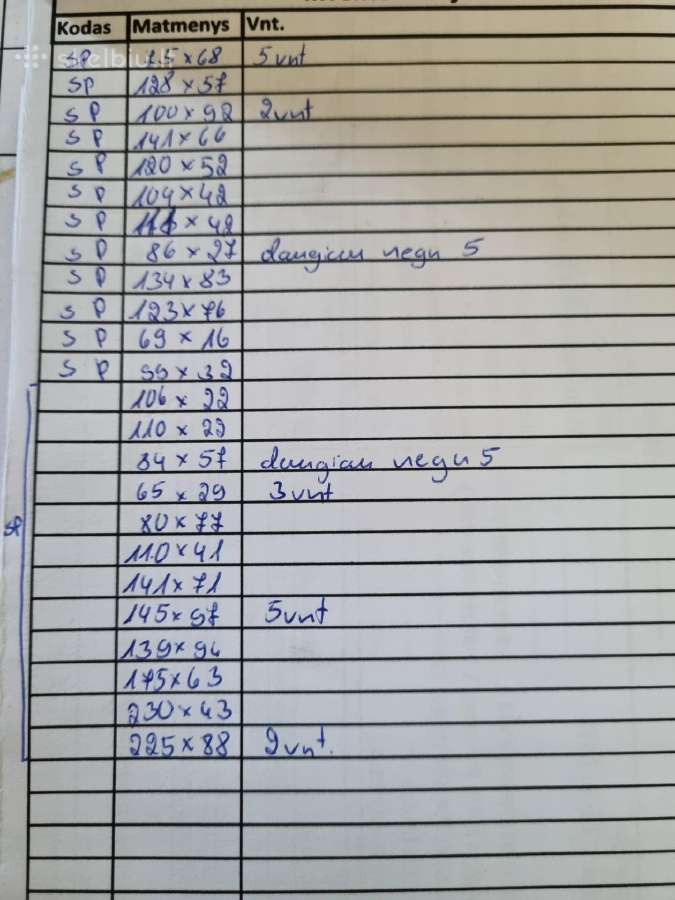 Kodas Matmenys Vnt.
SP 75 × 68 5 vnt
SP 128 × 57
SP 100 × 92 2 vnt
SP 141 × 66
SP 120 × 52
SP 104 × 42
SP × 42
SP 86 × 27 daugiau negu 5
SP 134 × 83
SP 123 × 76
SP 69 × 16
SP 99 × 32
106 × 22
110 × 22
84 × 57 daugiau negu 5
65 × 29 3 vnt
80 × 77
110 × 41
SP
141 × 71
145 × 97 5 vnt
139 × 94
175 × 63
230 × 43
225 × 88 2 vnt.